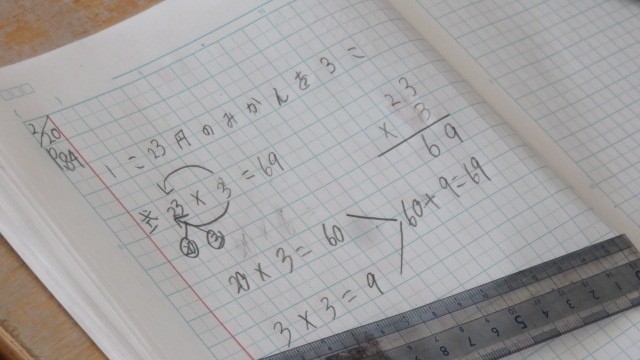 2/20
P.84
1こ23円のみかんを3こ
式 23×3=69
20 3
20×3=60
3×3=9
60+9=69
23
× 3
69